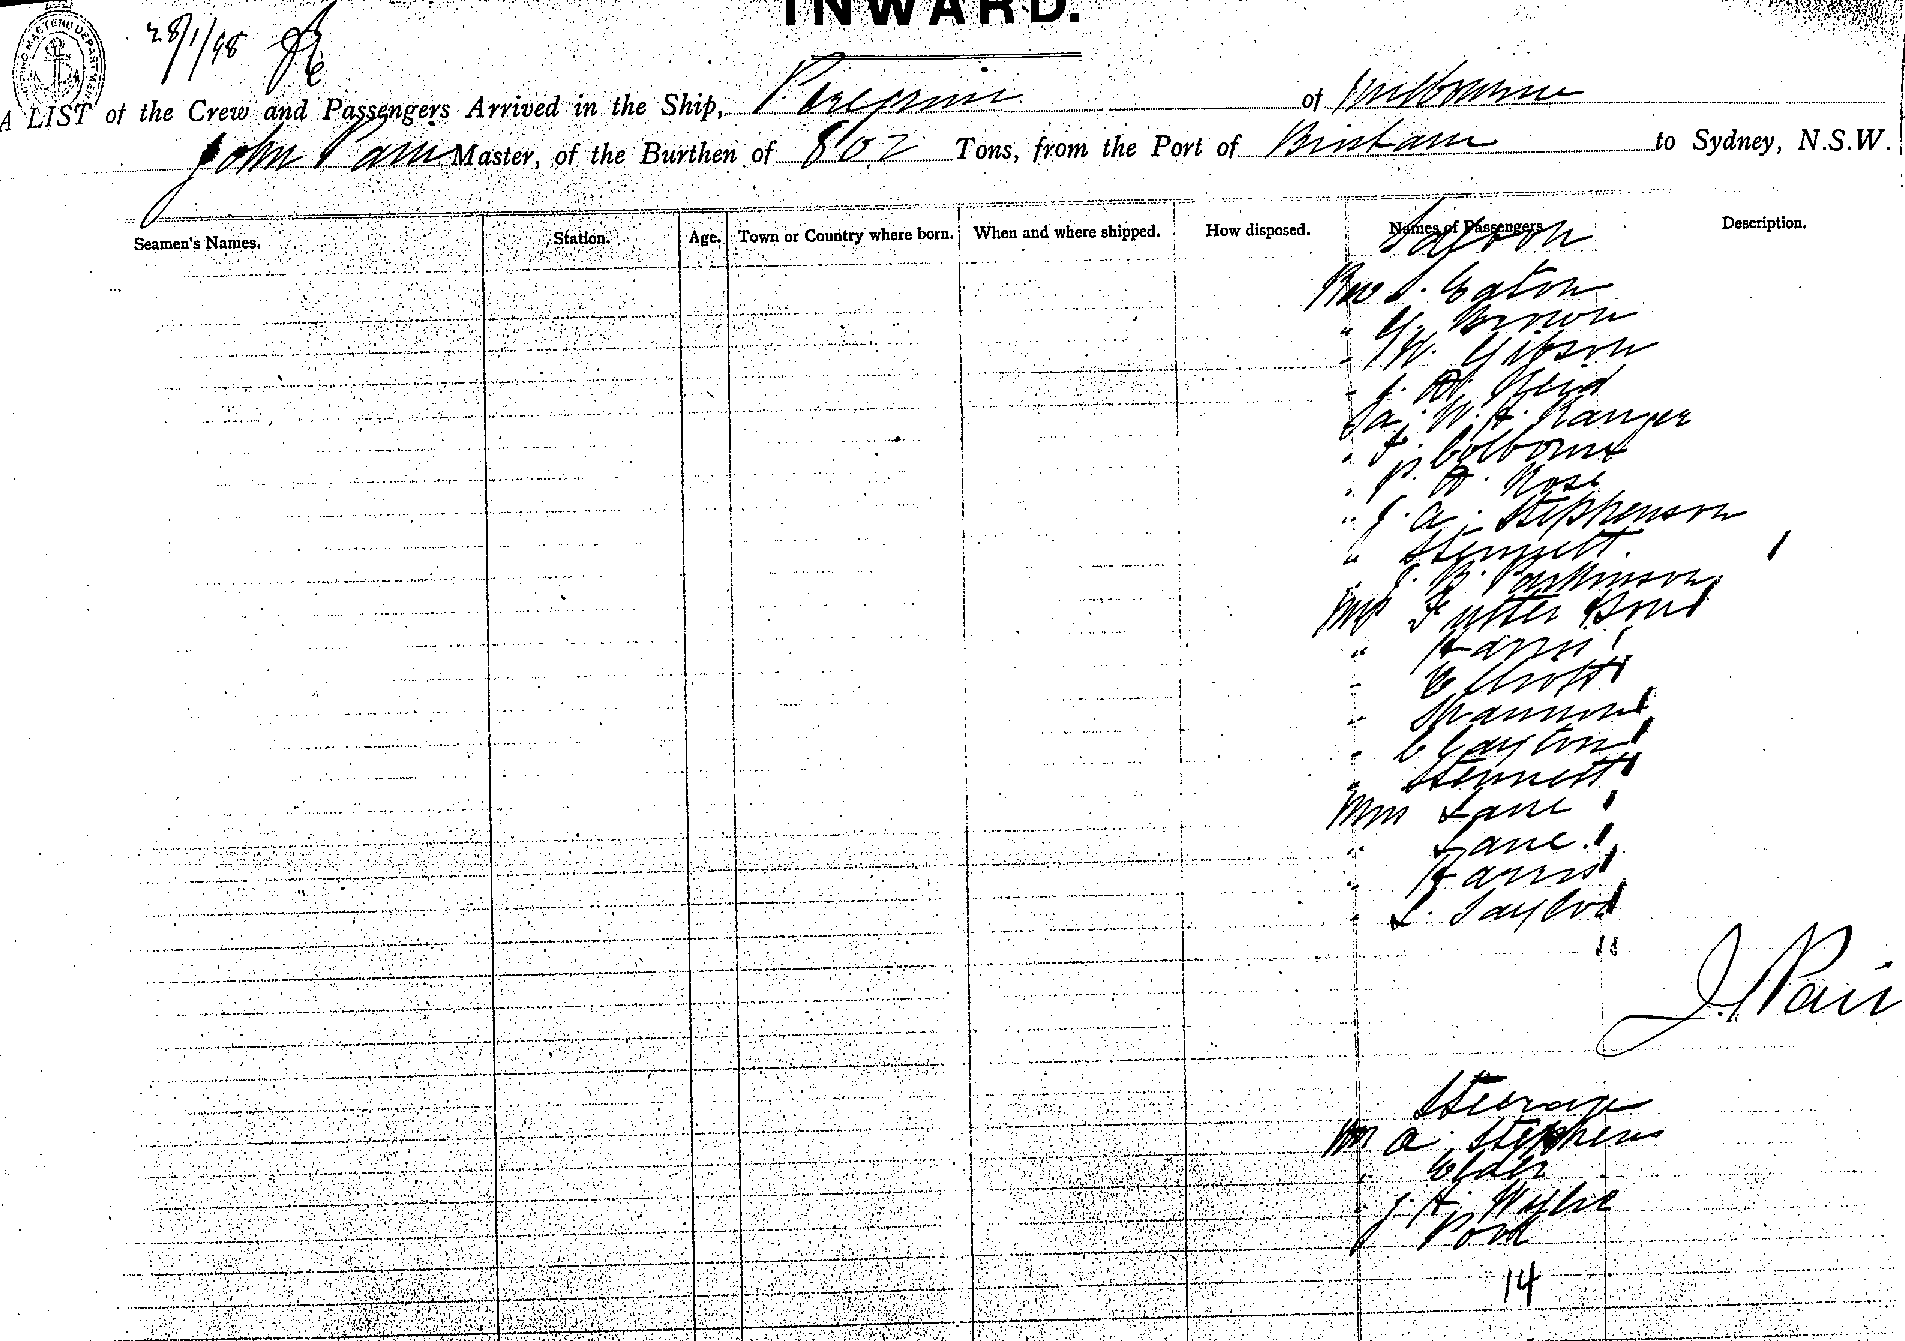 INWARD.
28/1/98
A LIST of the Crew and Passengers Arrived in the Ship, Peregrine of Melbourne
John Pain Master, of the Burthen of 802 Tons, from the Port of Brisbane to Sydney, N.S.W.
Seamen's Names. Station. Age. Town or Country where born. When and where shipped. How disposed. Names of Passengers Description.
Saloon
Rev J. Eaton
" Brown
" W. Gibson
" J. Reid
W. H. Ranger
" F. Colborne
" P. H. Rose
" J. A. Stephenson
" Stennett.
" J. B. Parkinson
Mrs Fytter
" Harris
" E Croft
" Shannon
" Clayton
" Stennett
Miss Lane
" Lane
" Harris
" L. Taylor
11
J. Pain
Steerage
Mr A. Stephens
" Elder
" J. H. Wylie
" Ford
14